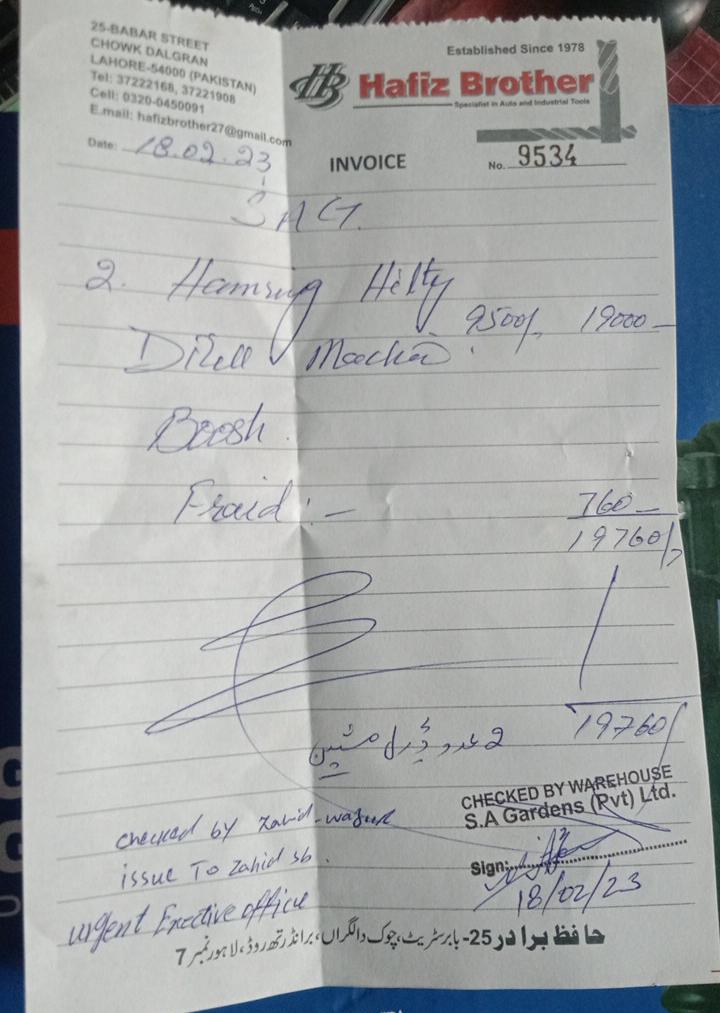 25-BABAR STREET
CHOWK DALGRAN
LAHORE-54000 (PAKISTAN)
Tel: 37222168, 37221908
Cell: 0320-0450091
E.mail: hafizbrother27@gmail.com
Established Since 1978
HB Hafiz Brother
Specialist in Auto and Industrial Tools
Date: 18.02.23
INVOICE
No. 9534
SAG.
2. Hamsing Hilty
Drell Machin 9500/ 19000-
Boosh
Fraid:- 760-
19760/
19760/
2 عدد ڈرل مشین
CHECKED BY WAREHOUSE
S.A Gardens (Pvt) Ltd.
checked by Zahid
issue To Zahid sb.
Sign:
18/02/23
urgent Exective office
حافظ برادر 25-بابر سٹریٹ، چوک دالگراں، برانڈرتھ روڈ، لاہور نمبر 7